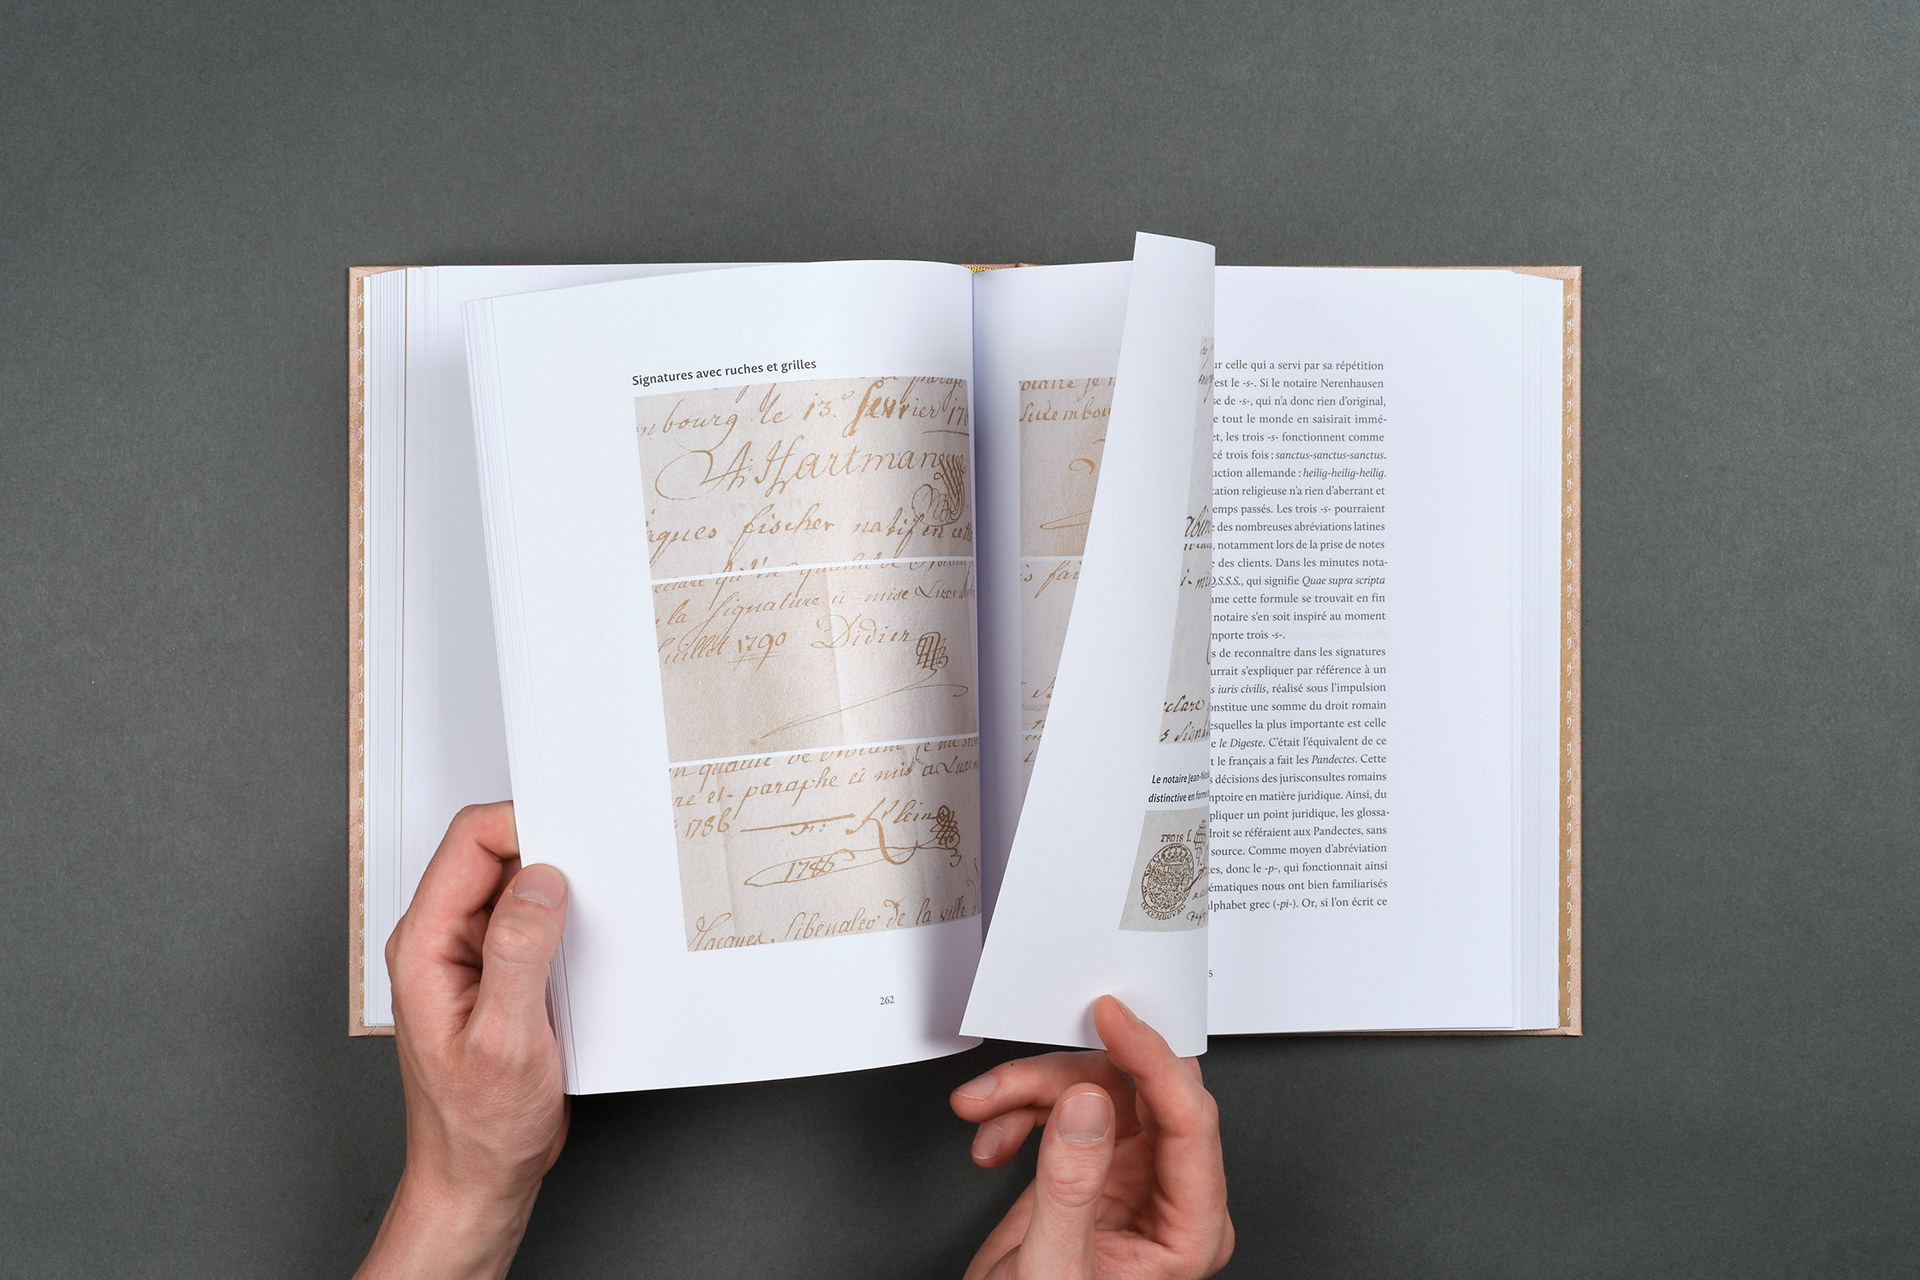 Signatures avec ruches et grilles
bourg le 13.e fevrier
A: Hartman
fischer natif en cette
qualité de
la signature ci-mise Luxemb
Juillet 1790 Didier
qualité de
et paraphe ci mis a Luxem
1786 Fr: Klein
1786
Jacques, libenaler de la ville
262
Luxembou
fai
clare
Le notaire Jean-
distinctive en forme
TROIS
celle qui a servi par sa répétition
est le -s-. Si le notaire Nerenhausen
se de -s-, qui n'a donc rien d'original,
tout le monde en saisirait immé-
et, les trois -s- fonctionnent comme
cé trois fois : sanctus-sanctus-sanctus.
uction allemande : heilig-heilig-heilig.
tation religieuse n'a rien d'aberrant et
emps passés. Les trois -s- pourraient
des nombreuses abréviations latines
, notamment lors de la prise de notes
des clients. Dans les minutes nota-
Q.S.S.S., qui signifie Quae supra scripta
me cette formule se trouvait en fin
notaire s'en soit inspiré au moment
mporte trois -s-.
s de reconnaître dans les signatures
urrait s'expliquer par référence à un
s iuris civilis, réalisé sous l'impulsion
onstitue une somme du droit romain
esquelles la plus importante est celle
e le Digeste. C'était l'équivalent de ce
t le français a fait les Pandectes. Cette
s décisions des jurisconsultes romains
mptoire en matière juridique. Ainsi, du
pliquer un point juridique, les glossa-
droit se référaient aux Pandectes, sans
source. Comme moyen d'abréviation
es, donc le -p-, qui fonctionnait ainsi
ématiques nous ont bien familiarisés
alphabet grec (-pi-). Or, si l'on écrit ce